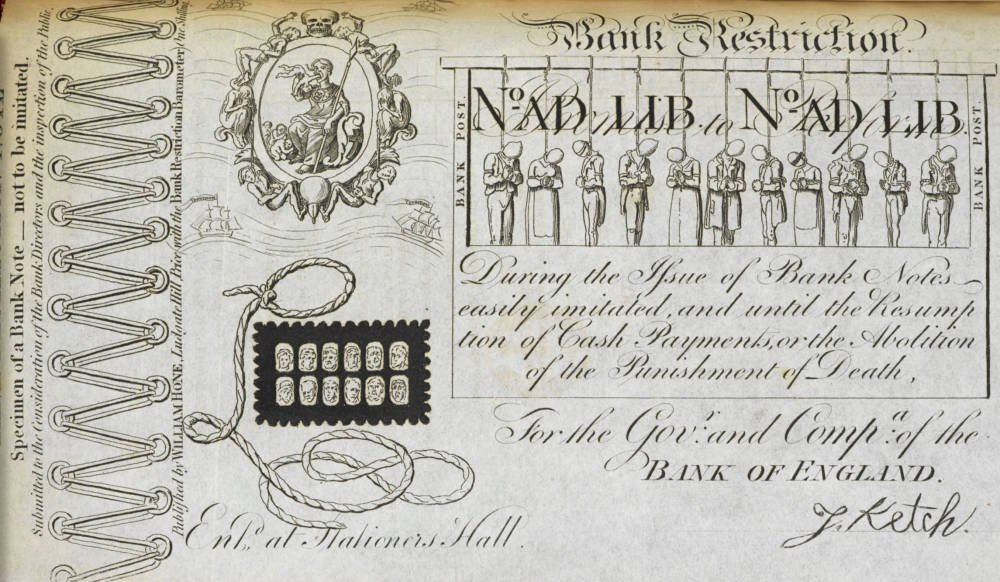 Specimen of a Bank Note — not to be imitated.
Submitted to the Consideration of the Bank Directors and the inspection of the Public.
Published by WILLIAM HONE, Ludgate Hill Price, with the Bank Restriction Barometer, One Shilling
Bank Restriction.
BANK POST.
No. AD LIB. No. AD LIB.
BANK POST.
During the Issue of Bank Notes
easily imitated, and until the Resump
tion of Cash Payments, or the Abolition
of the Punishment of Death,
For the Govr. and Compa. of the
BANK OF ENGLAND.
J. Ketch.
Entd. at Stationers Hall.